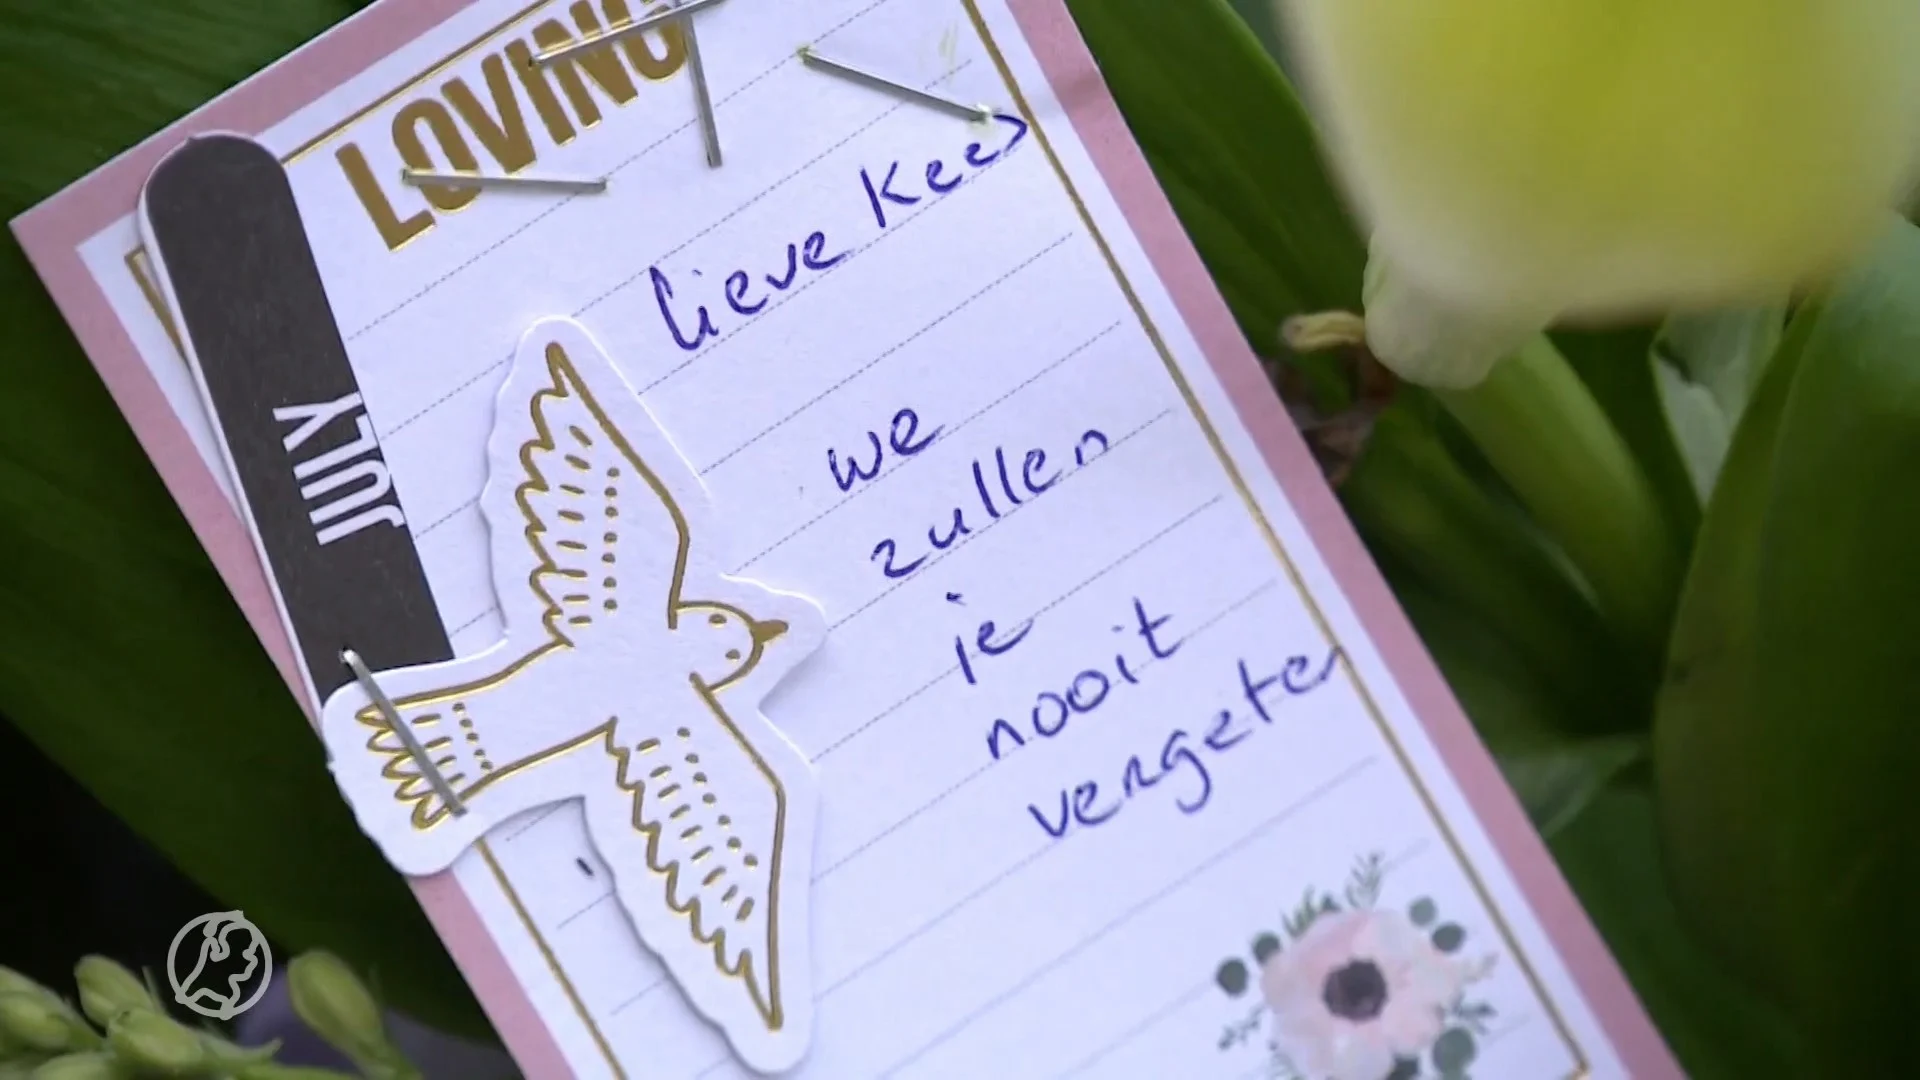 LOVING
JULY
lieve Kees
we
zullen
je
nooit
vergeten